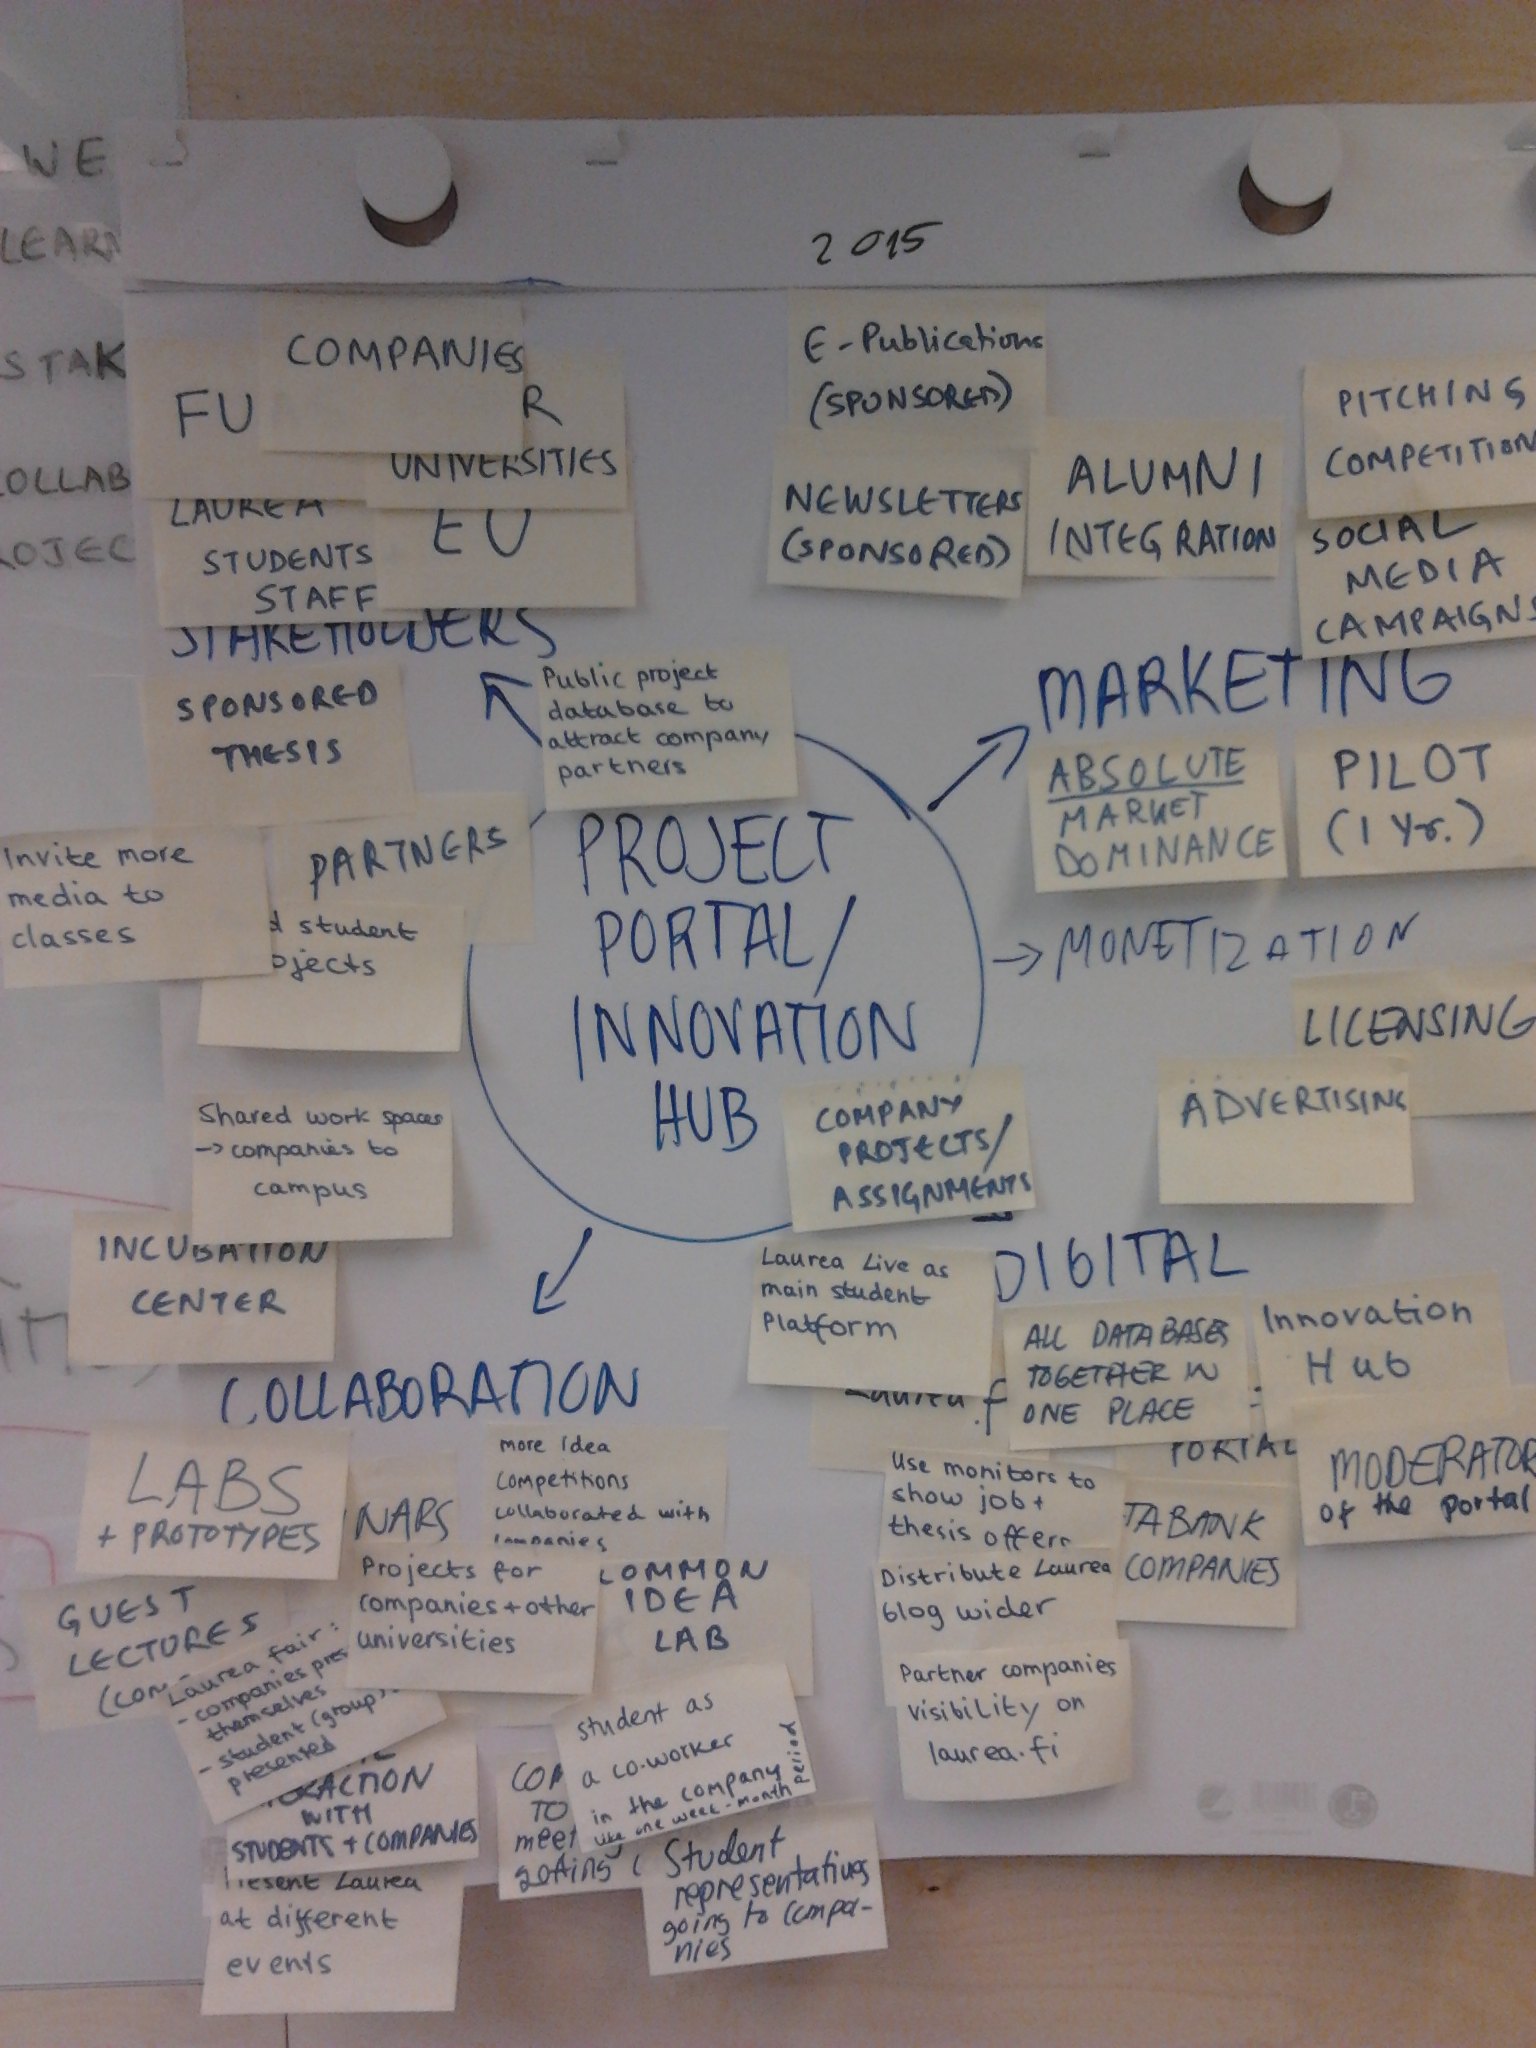 WE
2015
COMPANIES
FU
R
UNIVERSITIES
EU
LAUREA
STUDENTS
STAFF
STAKEHOLDERS
SPONSORED
THESIS
PARTNERS
Invite more
media to
classes
student
Shared work spaces
-> companies to
campus
INCUBATION
CENTER
E-Publications
(SPONSORED)
NEWSLETTERS
(SPONSORED)
ALUMNI
INTEGRATION
PITCHING
COMPETITION
SOCIAL
MEDIA
CAMPAIGNS
MARKETING
ABSOLUTE
MARKET
DOMINANCE
PILOT
(1 Yr.)
-> MONETIZATION
LICENSING
ADVERTISING
Public project
database to
attract company
partners
PROJECT
PORTAL/
INNOVATION
HUB
COMPANY
PROJECTS/
ASSIGNMENTS
DIGITAL
Laurea Live as
main student
Platform
ALL DATABASES
TOGETHER IN
ONE PLACE
Innovation
Hub
PORTAL
MODERATOR
of the portal
Use monitors to
show job +
thesis offers
TABANK
COMPANIES
Distribute Laurea
blog wider
Partner companies
visibility on
laurea.fi
COLLABORATION
LABS
+ PROTOTYPES
NARS
more idea
competitions
collaborated with
companies
Projects for
companies + other
universities
COMMON
IDEA
LAB
GUEST
LECTURES
Laurea fair:
- companies pres
themselves
- student (group)
presented
WITH
STUDENTS + COMPANIES
Present Laurea
at different
events
TO
meet
student as
a co-worker
in the company
like one week - month period
Student
representatives
going to compa-
nies